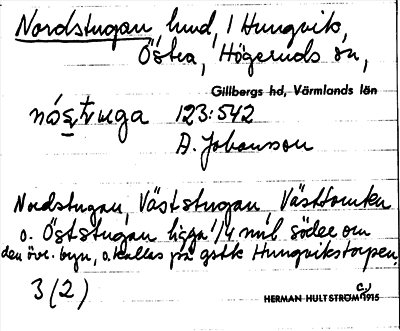 Nordstugan, lund, i Hungvik,
Östra, Högeruds sn,
Gillbergs hd, Värmlands län
nóṣtuga 123:542
A. Johansson
Nordstugan, Väststugan, Västtomten
o. Öststugan ligga 1/4 mil söder om
den övr. byn, o. kallas på gstk Hungvikstorpen.
3 (2)
HERMAN HULTSTRÖM C:a, 1915